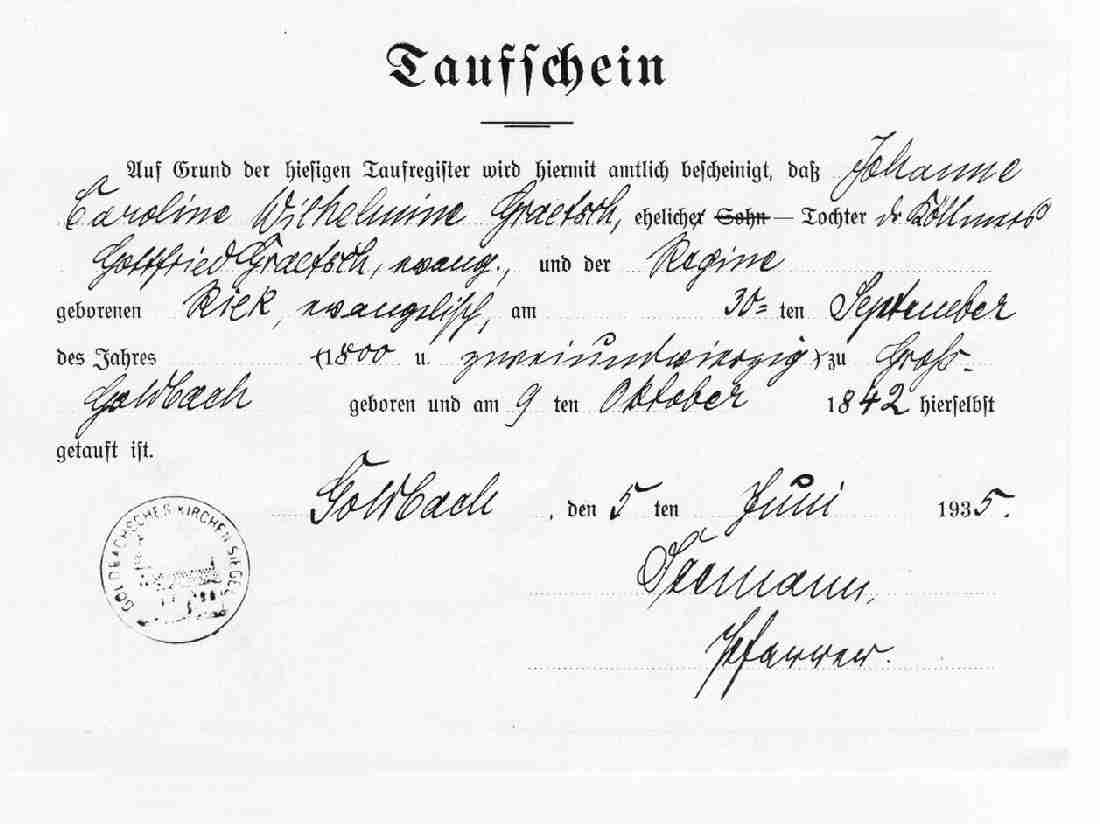 Taufschein
Auf Grund der hiesigen Taufregister wird hiermit amtlich bescheinigt, daß Johanne
Caroline Wilhelmine Graetsch, ehelicher Sohn — Tochter des Köllmers
Gottfried Graetsch, evang., und der Regine
geborenen Riek, evangelisch, am 30= ten September
des Jahres (1800 u. zweiundvierzig) zu Groß-
Goldbach geboren und am 9 ten Oktober 1842 hierselbst
getauft ist.
Goldbach, den 5 ten Juni 1935.
GOLDBACHSCHES KIRCHEN SIEGEL
Pfarrer.